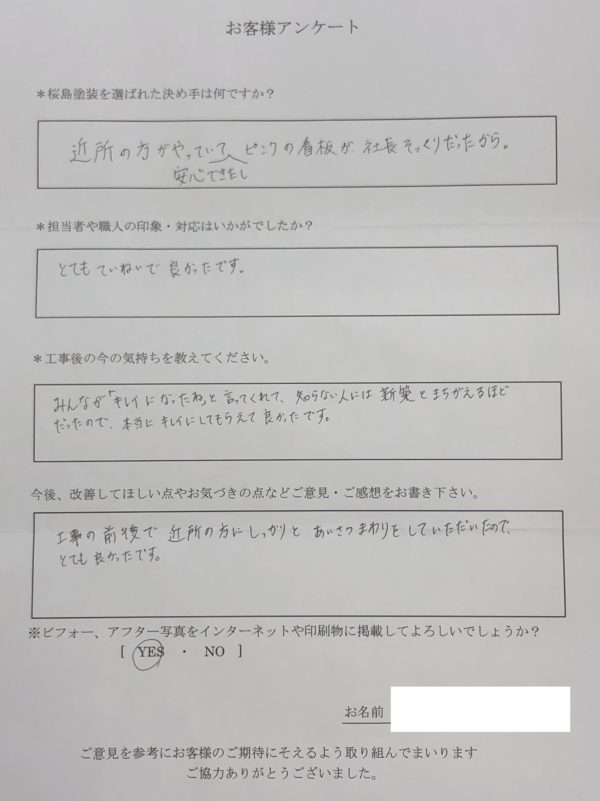 お客様アンケート
＊桜島塗装を選ばれた決め手は何ですか？
近所の方がやっていて、ピンクの看板が、社長そっくりだったから。
安心できたし
＊担当者や職人の印象・対応はいかがでしたか？
とても ていねいで 良かったです。
＊工事後の今の気持ちを教えてください。
みんなが「キレイになったね」と言ってくれて、知らない人には 新築とまちがえるほど
だったので、本当に キレイにしてもらえて 良かったです。
今後、改善してほしい点やお気づきの点などご意見・ご感想をお書き下さい。
工事の前後で 近所の方にしっかりと あいさつまわりをしていただいたので、
とても 良かったです。
※ビフォー、アフター写真をインターネットや印刷物に掲載してよろしいでしょうか？
[ YES ・ NO ]
お名前
ご意見を参考にお客様のご期待にそえるよう取り組んでまいります
ご協力ありがとうございました。